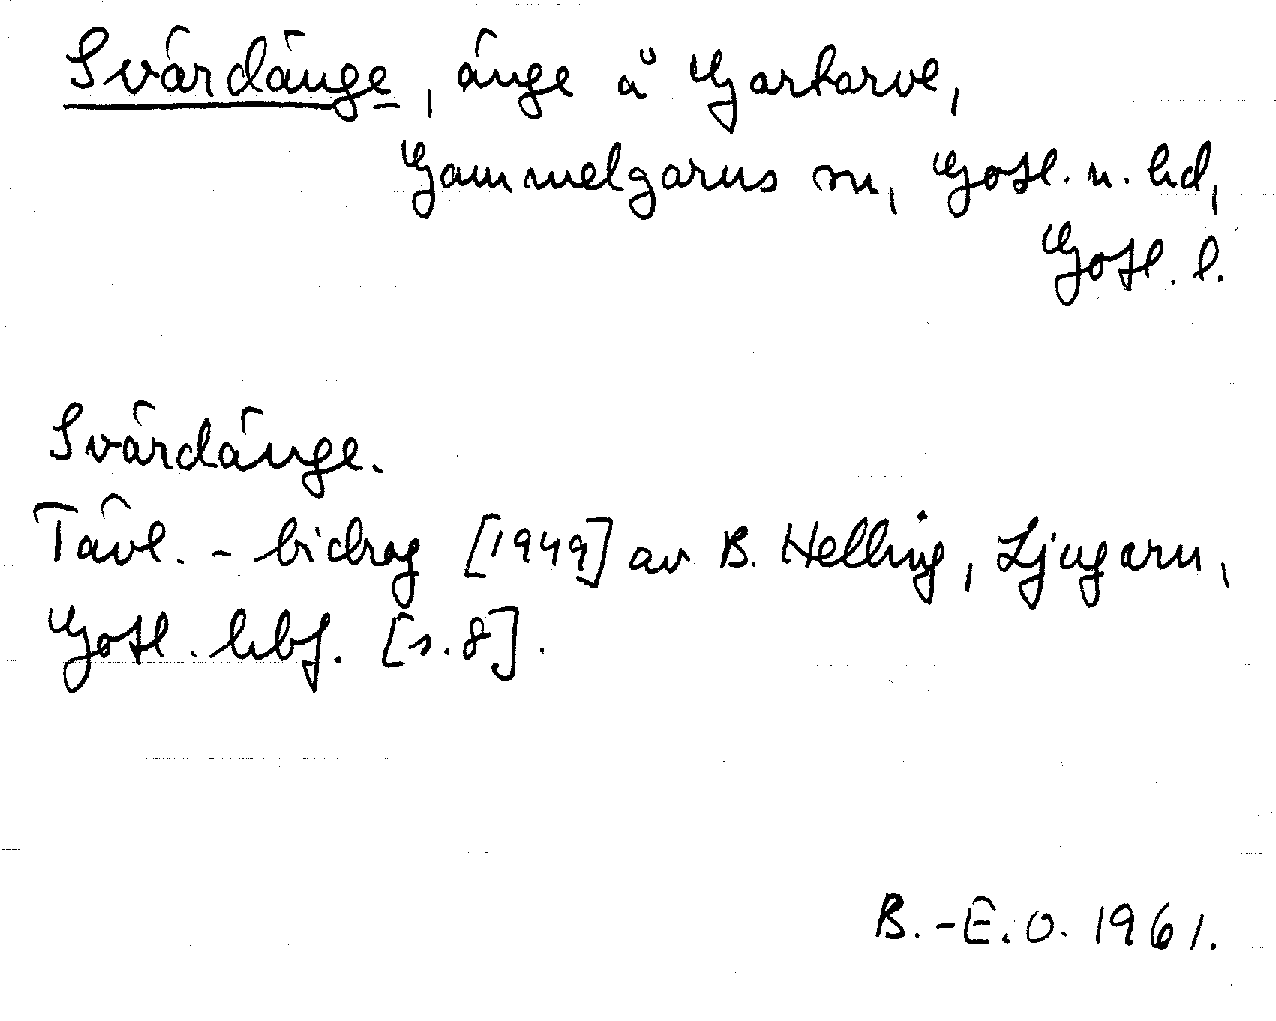 Svärdänge, änge å Gartarve,
Gammelgarns sn, Gotl. n. hd,
Gotl. l.
Svärdänge.
Tävl.-bidrag [1949] av B. Helling, Ljugarn,
Gotl. hbf. [s. 8].
B.-E.O. 1961.